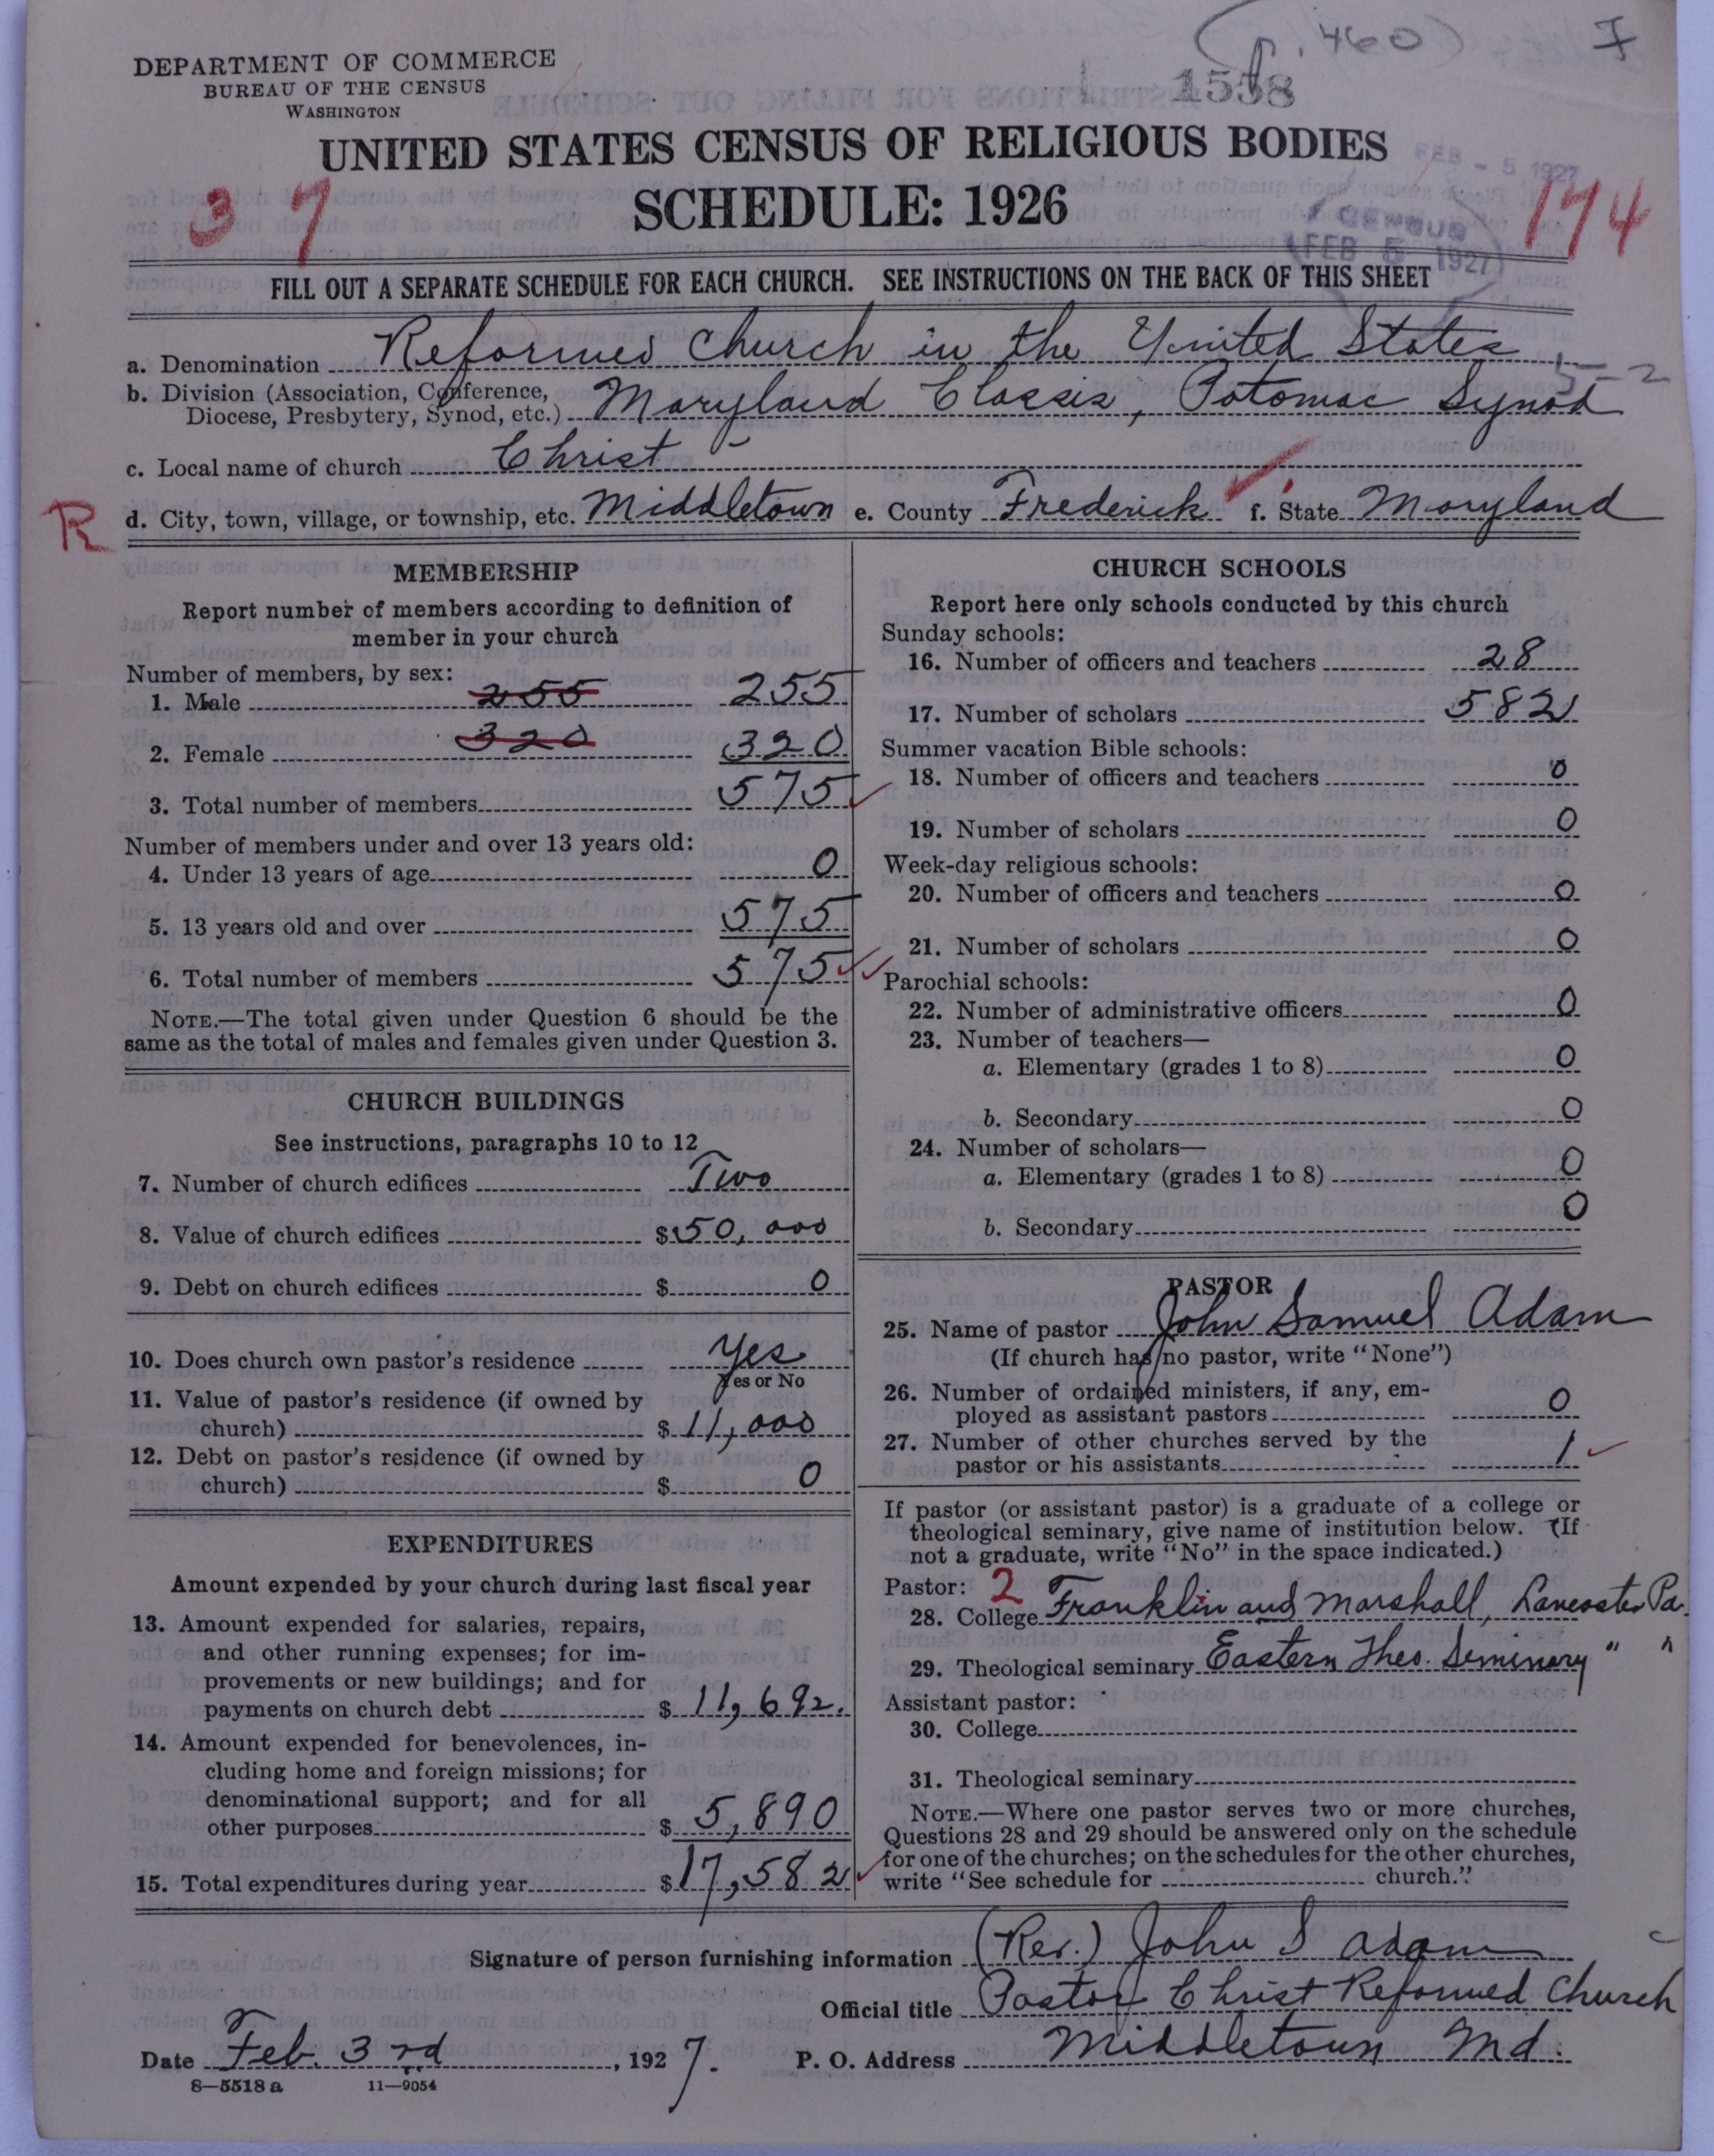 (p. 460) F
DEPARTMENT OF COMMERCE
BUREAU OF THE CENSUS
WASHINGTON
1558
UNITED STATES CENSUS OF RELIGIOUS BODIES
FEB - 5 1927
3 7 SCHEDULE: 1926 174
CENSUS
FEB 5 1927
FILL OUT A SEPARATE SCHEDULE FOR EACH CHURCH. SEE INSTRUCTIONS ON THE BACK OF THIS SHEET
a. Denomination Reformed Church in the United States
5-2
b. Division (Association, Conference,
Diocese, Presbytery, Synod, etc.) Maryland Classis, Potomac Synod
c. Local name of church Christ
R d. City, town, village, or township, etc. Middletown e. County Frederick f. State Maryland
MEMBERSHIP
Report number of members according to definition of
member in your church
Number of members, by sex:
1. Male 255 255
2. Female 320 320
3. Total number of members 575
Number of members under and over 13 years old:
4. Under 13 years of age 0
5. 13 years old and over 575
6. Total number of members 575
NOTE.—The total given under Question 6 should be the
same as the total of males and females given under Question 3.
CHURCH BUILDINGS
See instructions, paragraphs 10 to 12
7. Number of church edifices Two
8. Value of church edifices $50,000
9. Debt on church edifices $ 0
10. Does church own pastor's residence Yes
Yes or No
11. Value of pastor's residence (if owned by
church) $ 11,000
12. Debt on pastor's residence (if owned by
church) $ 0
EXPENDITURES
Amount expended by your church during last fiscal year
13. Amount expended for salaries, repairs,
and other running expenses; for im-
provements or new buildings; and for
payments on church debt $ 11,692.
14. Amount expended for benevolences, in-
cluding home and foreign missions; for
denominational support; and for all
other purposes $ 5,890
15. Total expenditures during year $17,582
CHURCH SCHOOLS
Report here only schools conducted by this church
Sunday schools:
16. Number of officers and teachers 28
17. Number of scholars 582
Summer vacation Bible schools:
18. Number of officers and teachers 0
19. Number of scholars 0
Week-day religious schools:
20. Number of officers and teachers 0
21. Number of scholars 0
Parochial schools:
22. Number of administrative officers 0
23. Number of teachers—
a. Elementary (grades 1 to 8) 0
b. Secondary 0
24. Number of scholars—
a. Elementary (grades 1 to 8) 0
b. Secondary 0
PASTOR
25. Name of pastor John Samuel Adam
(If church has no pastor, write "None")
26. Number of ordained ministers, if any, em-
ployed as assistant pastors 0
27. Number of other churches served by the
pastor or his assistants 1
If pastor (or assistant pastor) is a graduate of a college or
theological seminary, give name of institution below. (If
not a graduate, write "No" in the space indicated.)
Pastor: 2
28. College Franklin and Marshall, Lancaster Pa.
29. Theological seminary Eastern Theo. Seminary " "
Assistant pastor:
30. College
31. Theological seminary
NOTE.—Where one pastor serves two or more churches,
Questions 28 and 29 should be answered only on the schedule
for one of the churches; on the schedules for the other churches,
write "See schedule for church."
Signature of person furnishing information (Rev.) John S Adam
Official title Pastor Christ Reformed Church
Date Feb. 3rd, 1927. P. O. Address Middletown Md.
8—5518 a 11—9054